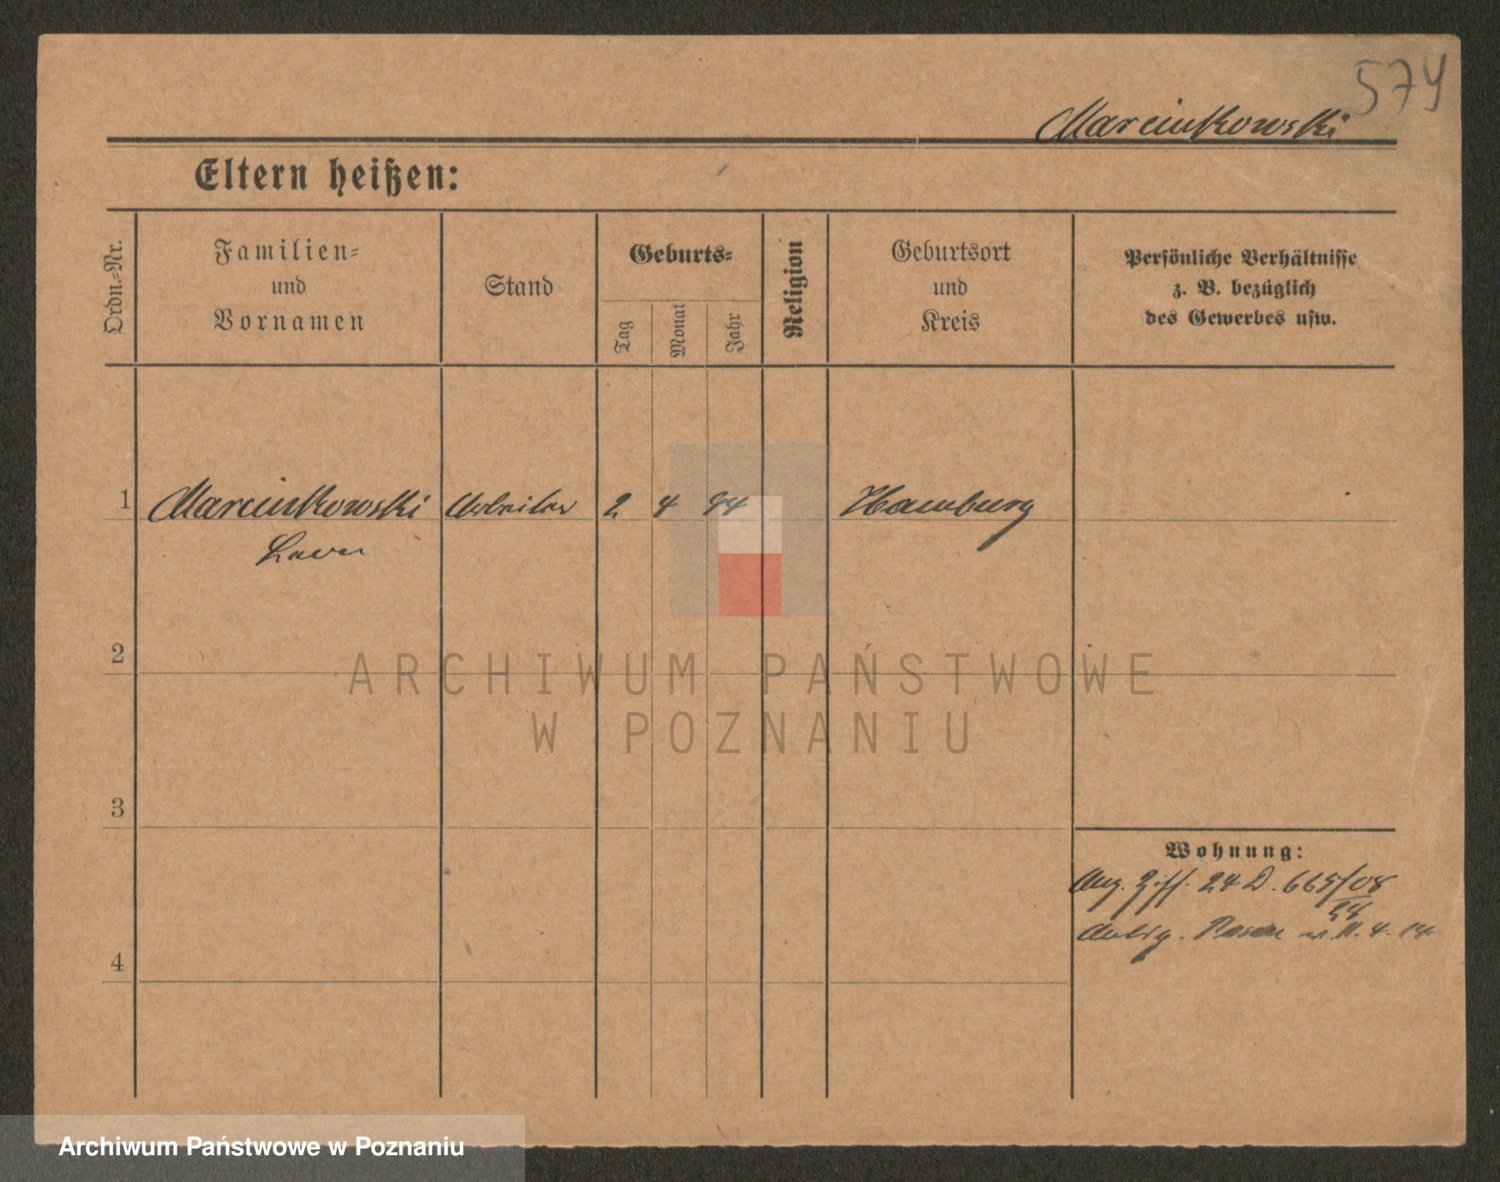 574
Marcinkowski
Eltern heißen:
Ordn.-Nr.
Familien-
und
Vornamen
Stand
Geburts-
Tag
Monat
Jahr
Religion
Geburtsort
und
Kreis
Persönliche Verhältnisse
z. B. bezüglich
des Gewerbes usw.
1 Marcinkowski Arbeiter 2 4 94 Hamburg
2
3
4
Wohnung:
Ang. Ziff. 24 D. 665/08
28
Posen 11. 4. 14
ARCHIWUM PAŃSTWOWE
W POZNANIU
Archiwum Państwowe w Poznaniu